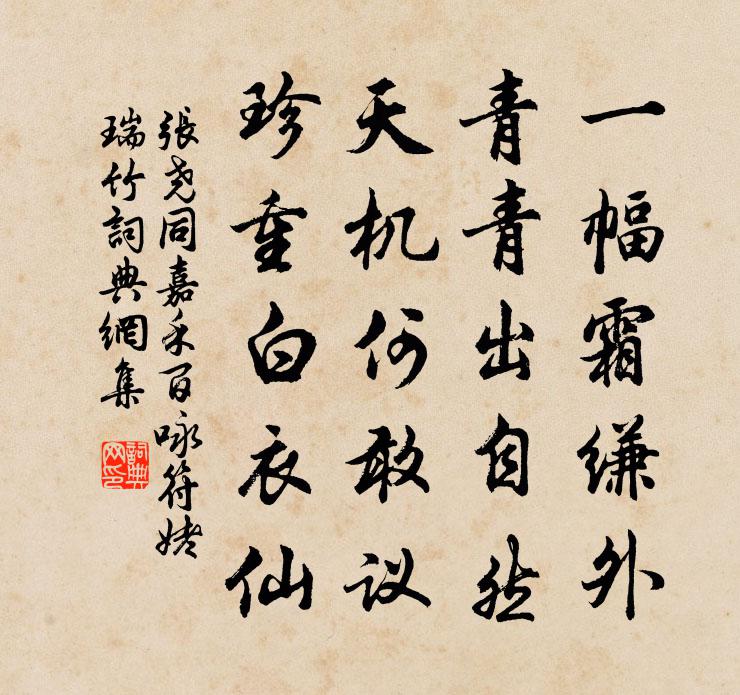 一幅霜缣外
青青出自然
天机何敢议
珍重白衣仙
張尧同嘉禾百咏符姥
瑞竹詞典網集
詞典网印